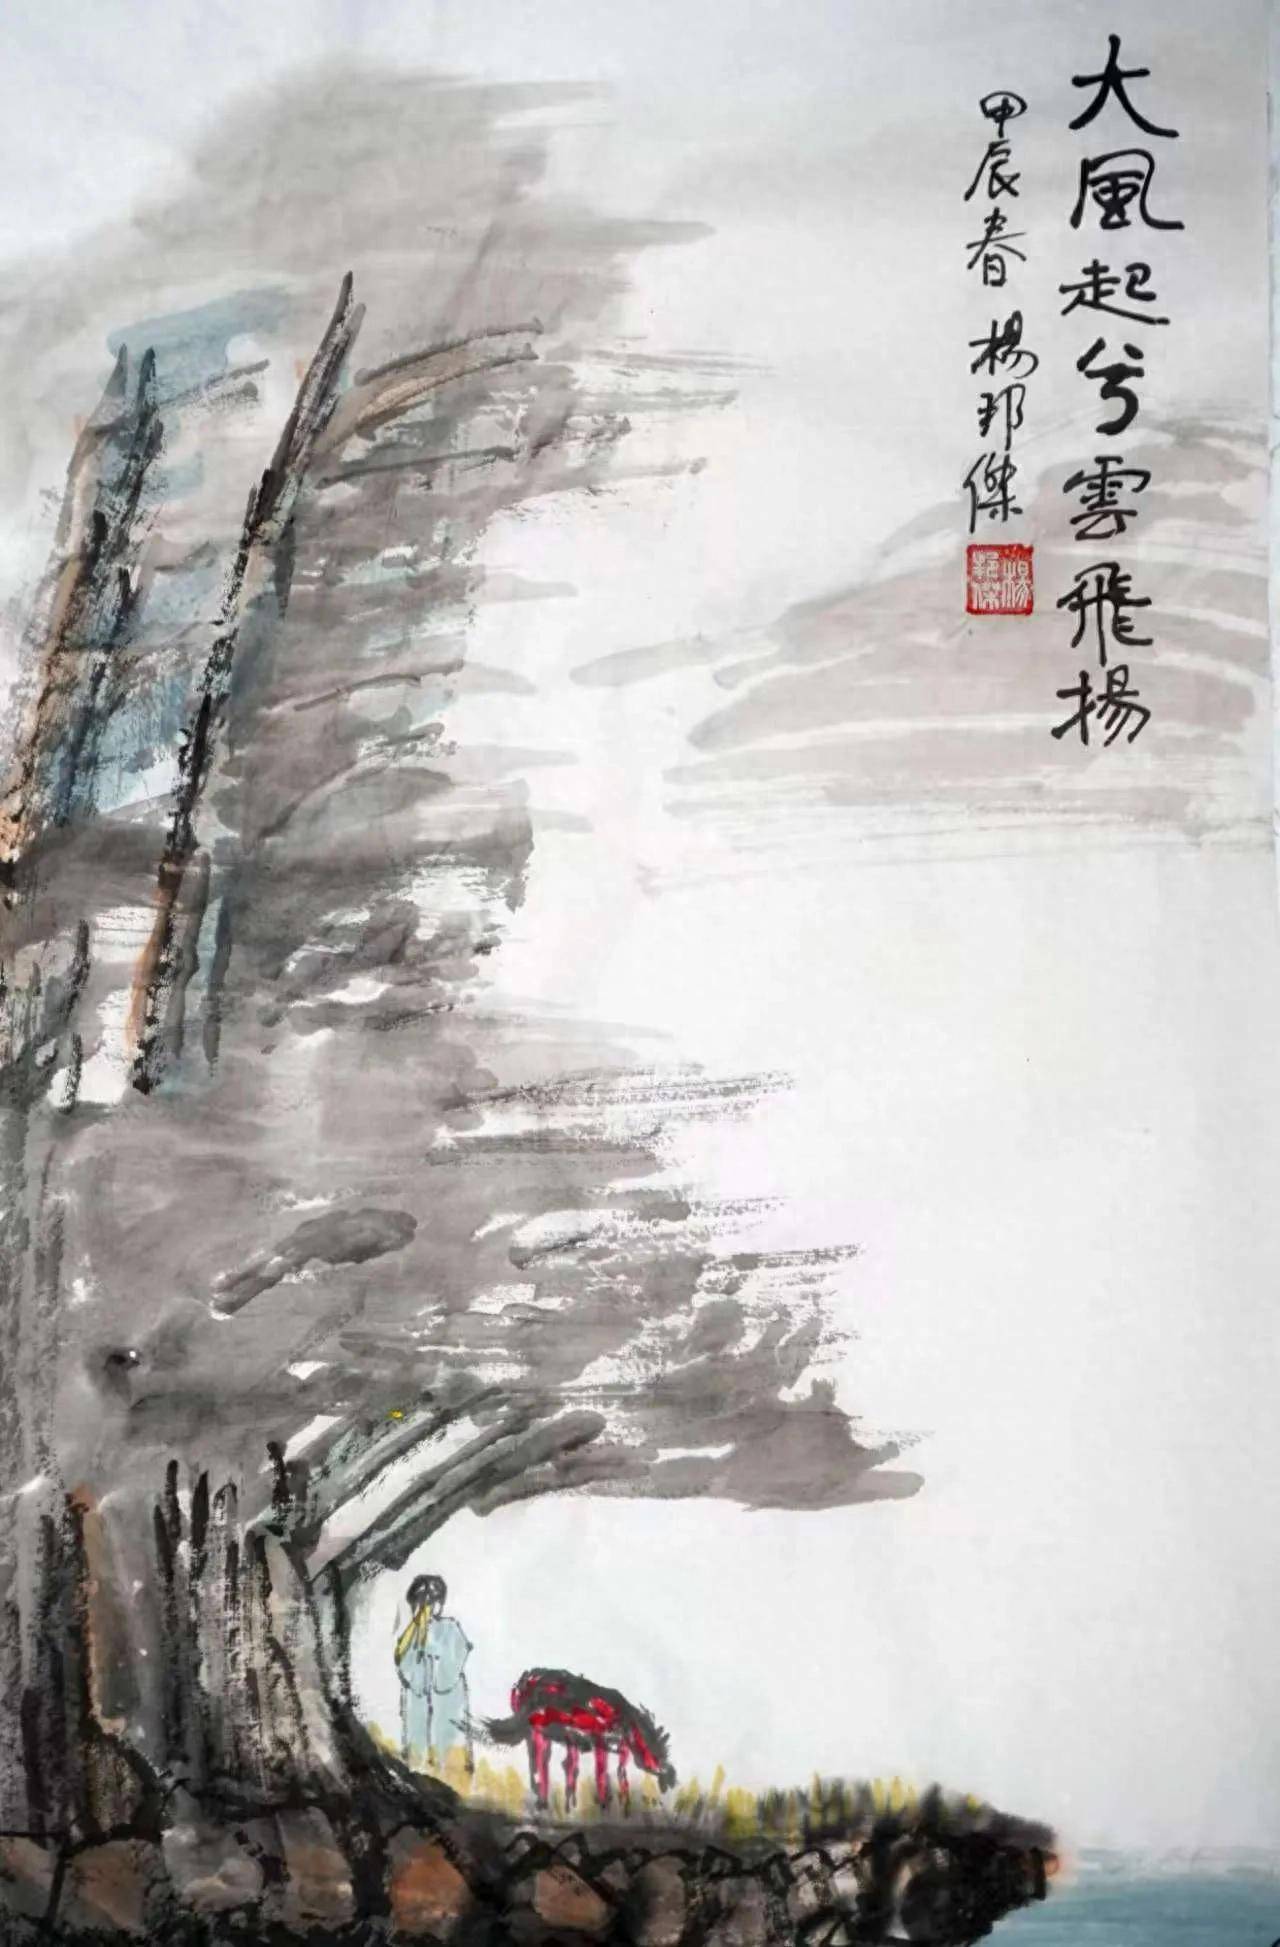 大風起兮雲飛揚
甲辰春 楊邦傑
楊邦傑